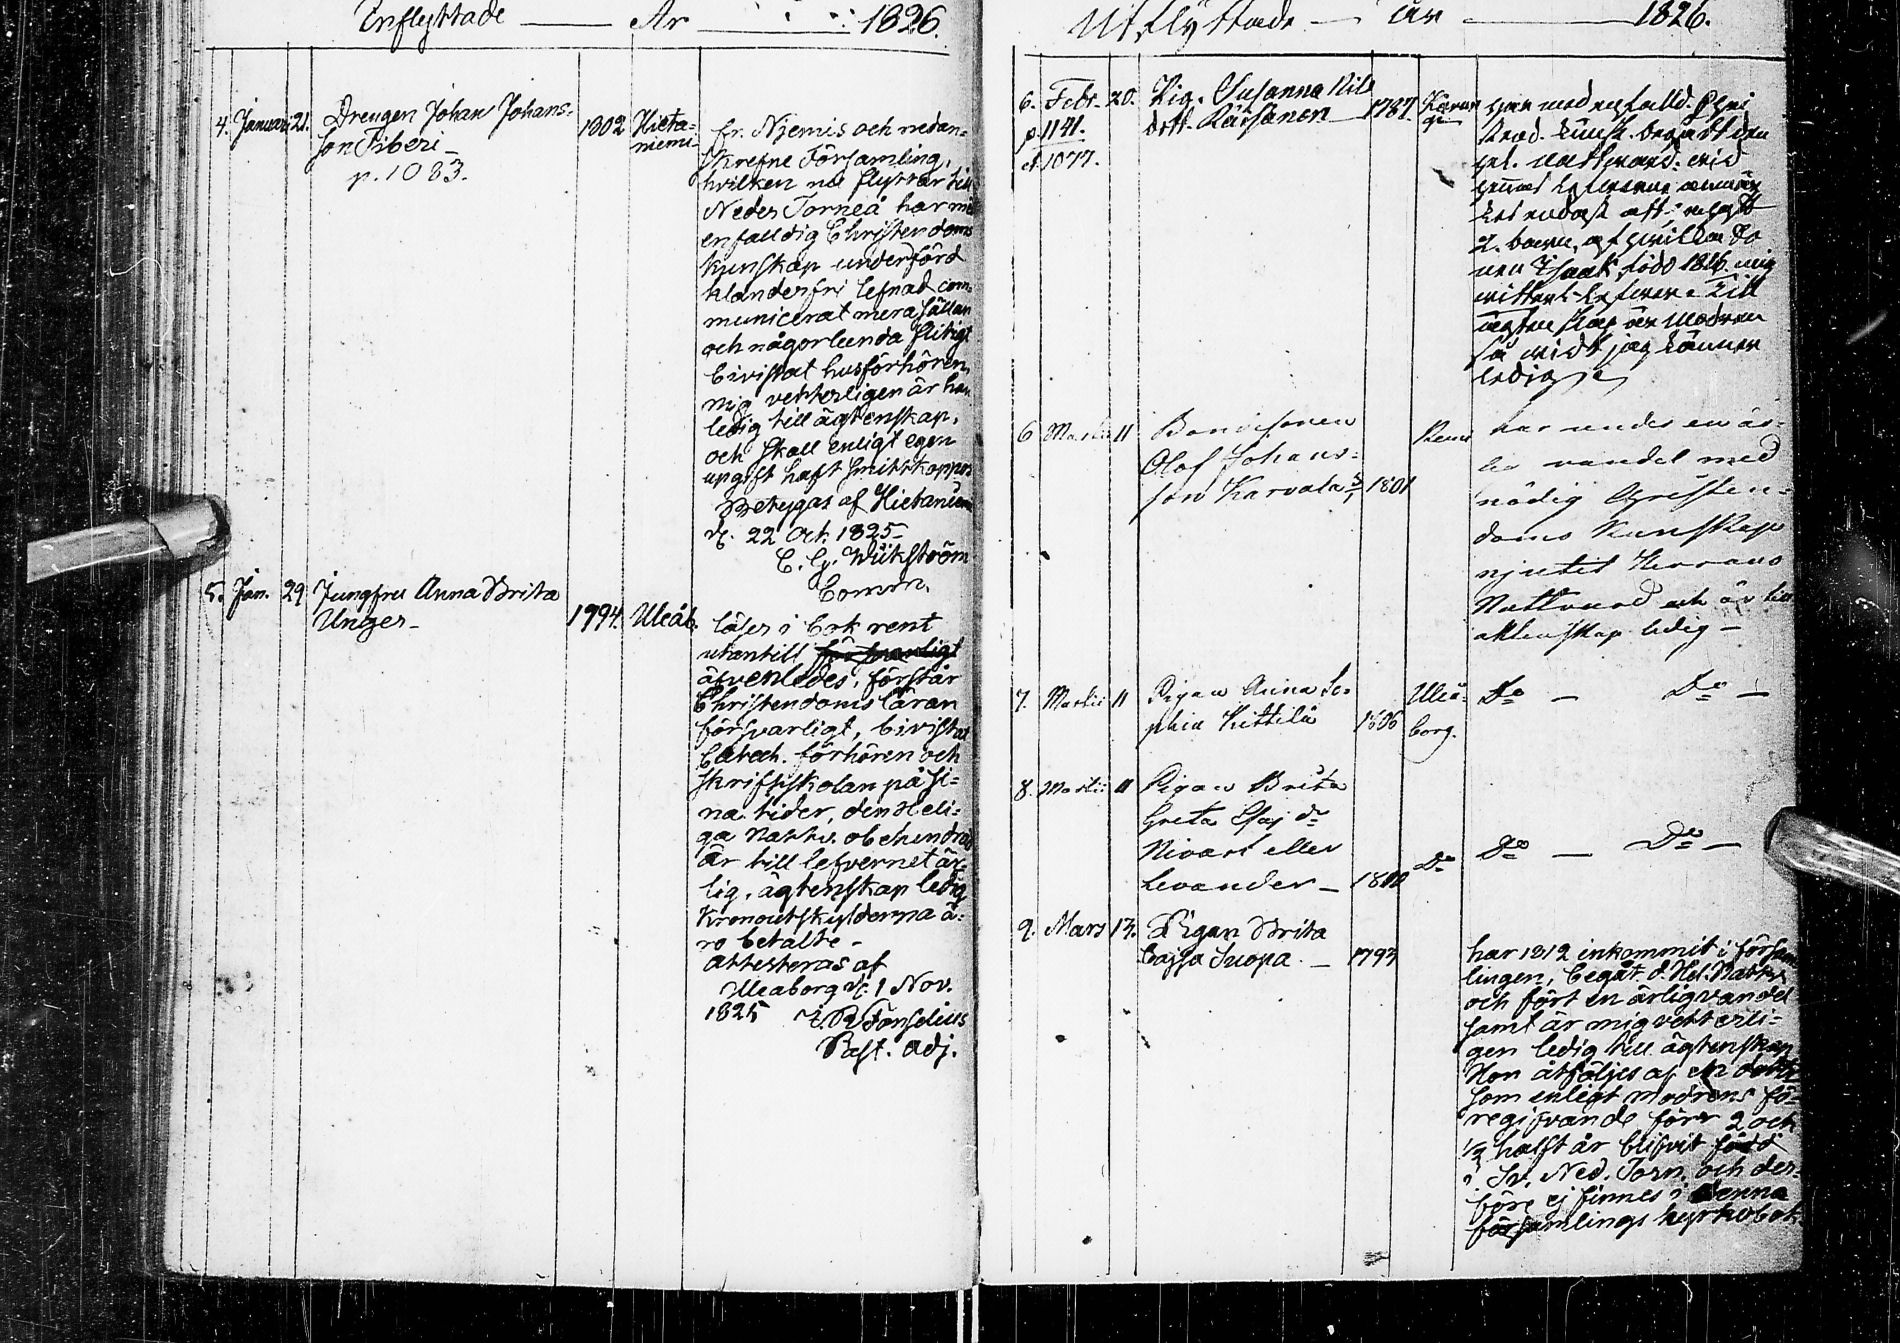 Inflyttade — År — 1826.
4. Januari 21. Drengen Johan Johans-
son Fiberi
p. 1083.
1802 Hieta-
niemi
fr. Njemis och nedan-
skrefne Församling,
hvilken nu flyttar till
Neder Torneå har med
enfalldig Christendoms
kunskap underförd
klanderfri lefnad com-
municerat mera sällan
och någorlunda flitigt
bivistat husförhören,
mig vetterligen är han
ledig till ägtenskap,
och skall enligt egen
upgift haft smittkoppor
Betygas af Hietaniemi
d. 22 Oct. 1825
C. G. Wiikström
Comm.
5. Jan. 29 Jungfru Anna Brita
Unger
1794. Uleåb.
läser i bok rent
utantill
äfvenledes, förstår
Christendoms läran
försvarligt, bivistat
Catech. förhören och
skriftskolan på si-
na tider, den Heli-
ga Nattv. obehindrad
är till lefvernet är-
lig, ägtenskap ledig
Kronoutskylderna ä-
ro betalte -
attesteras af
Uleaborg d. 1 Nov.
1825
Past. adj.
Utflyttade — år — 1826.
6. Febr. 20. Pig. Susanna Nils
dott.
1787.
p. 1141.
et 1077.
har med enfalld. Chri
stend. kunsk. begått den
hel. nattvard, vid
ket endast att;
2. barn, af hvilka So
nen Isaak född 1826. mig
vitterl. lefver. Till
ägtenskap är modren
så vidt jag känner
ledig
6 Martii 11 Bondsonen
Olof Johans-
son Karvola
1801 Kemi
har under en är-
lig vandel med
nödig Christen-
doms Kunskap
njutit Herrans
Nattvard och är till
aktenskap ledig —
7. Martii 11 Pigan Anna So-
phia Kittilä
1806 Uleå-
borg.
Do — Do —
8. Martii 11 Pigan Brita
Greta Esaj dr
Nivari eller
Levander —
Do
Do — Do —
9. Mars 13. Pigan Brita
Cajsa Suopa —
har 1812 inkommit i försam
lingen, begåt d. Hel. Nattv.
och fört en ärlig vandel
samt är mig vetterli-
gen ledig till ägtenskap
Hon åtföljes af en dotter
som enligt modrens fö-
regifvande för 2 och
1/2 halft år blifvit född
i Sv. Ned. Torn. och der-
före ej finnes i denna
församlings kyrkobok